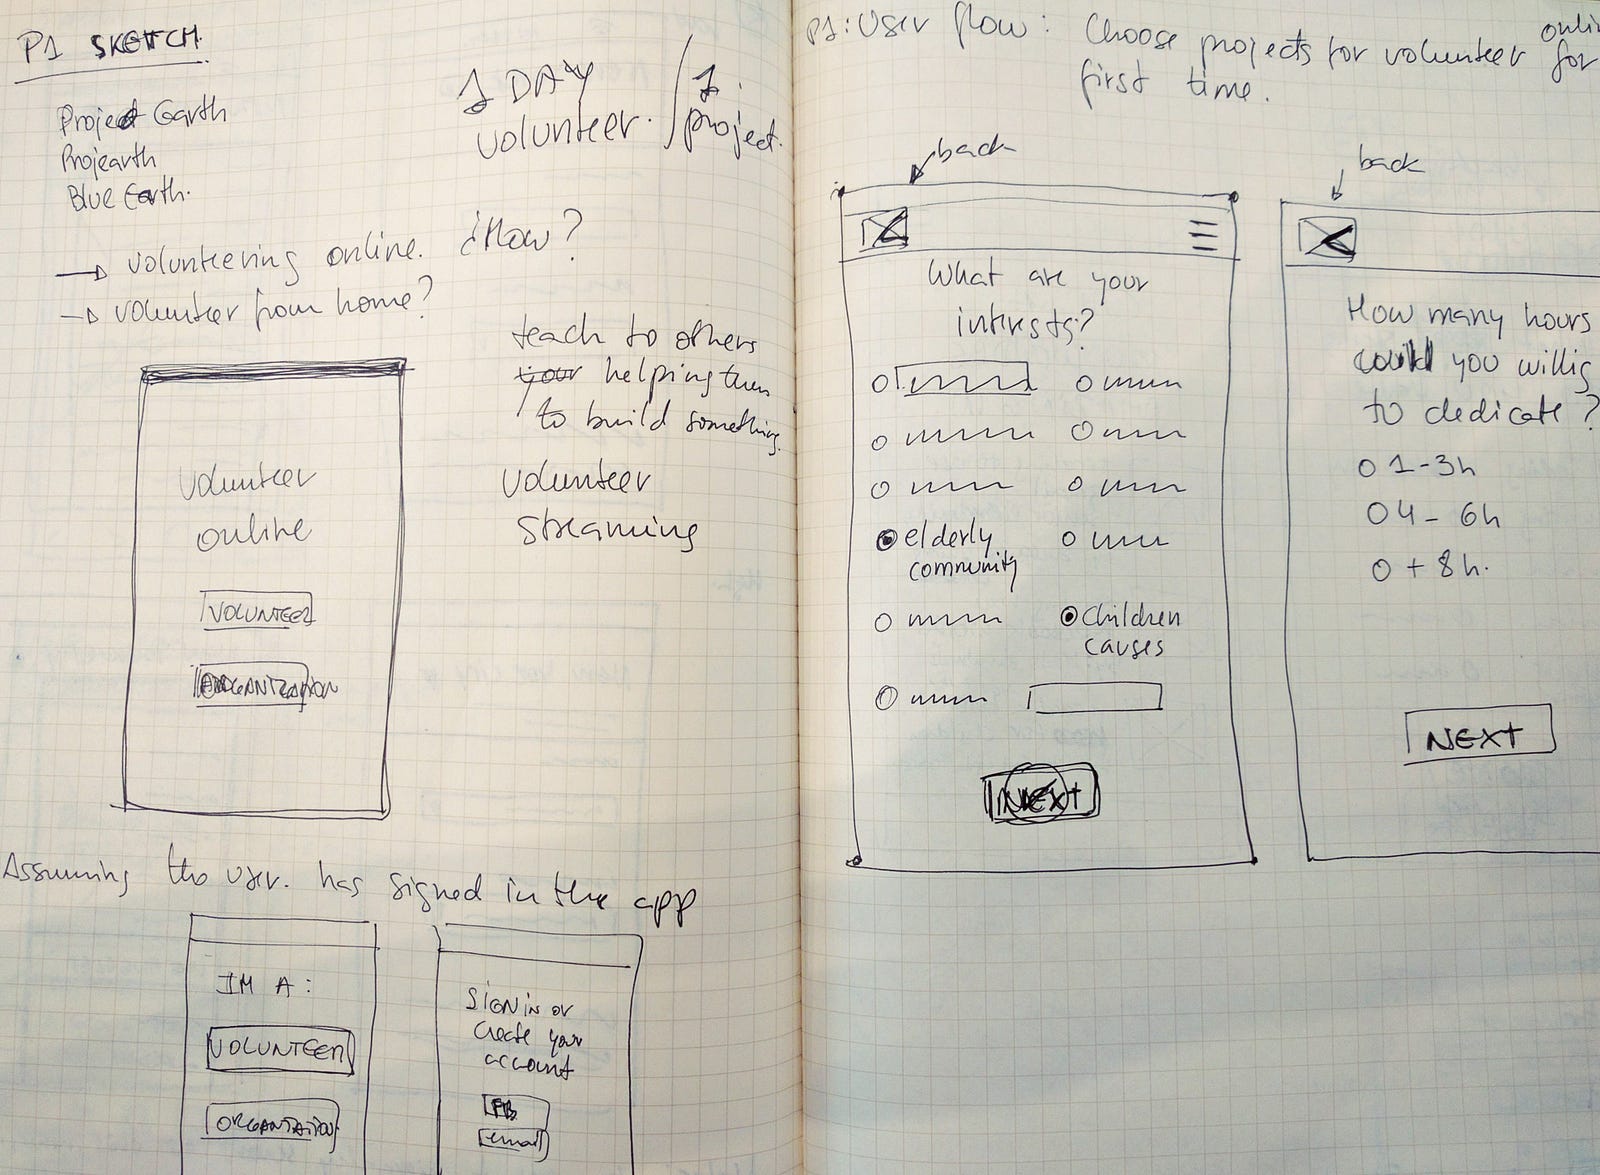 P1 SKETCH.
Project Earth
Projearth
Blue Earth.
1 DAY
volunteer. / 1.
project.
→ volunteering online. ¿How?
→ volunteer from home?
teach to others
your helping them
to build something.
volunteer
streaming
volunteer
online
VOLUNTEER
ORGANIZATION
Assuming the user. has signed in the app
IM A:
VOLUNTEER
SIGN in or
create your
account
FB
email
P1: User flow: Choose projects for volunteer online for
first time.
back
What are your
interests?
elderly
community
Children
causes
NEXT
back
How many hours
could you willig
to dedicate?
1-3h
4-6h
+8h.
NEXT